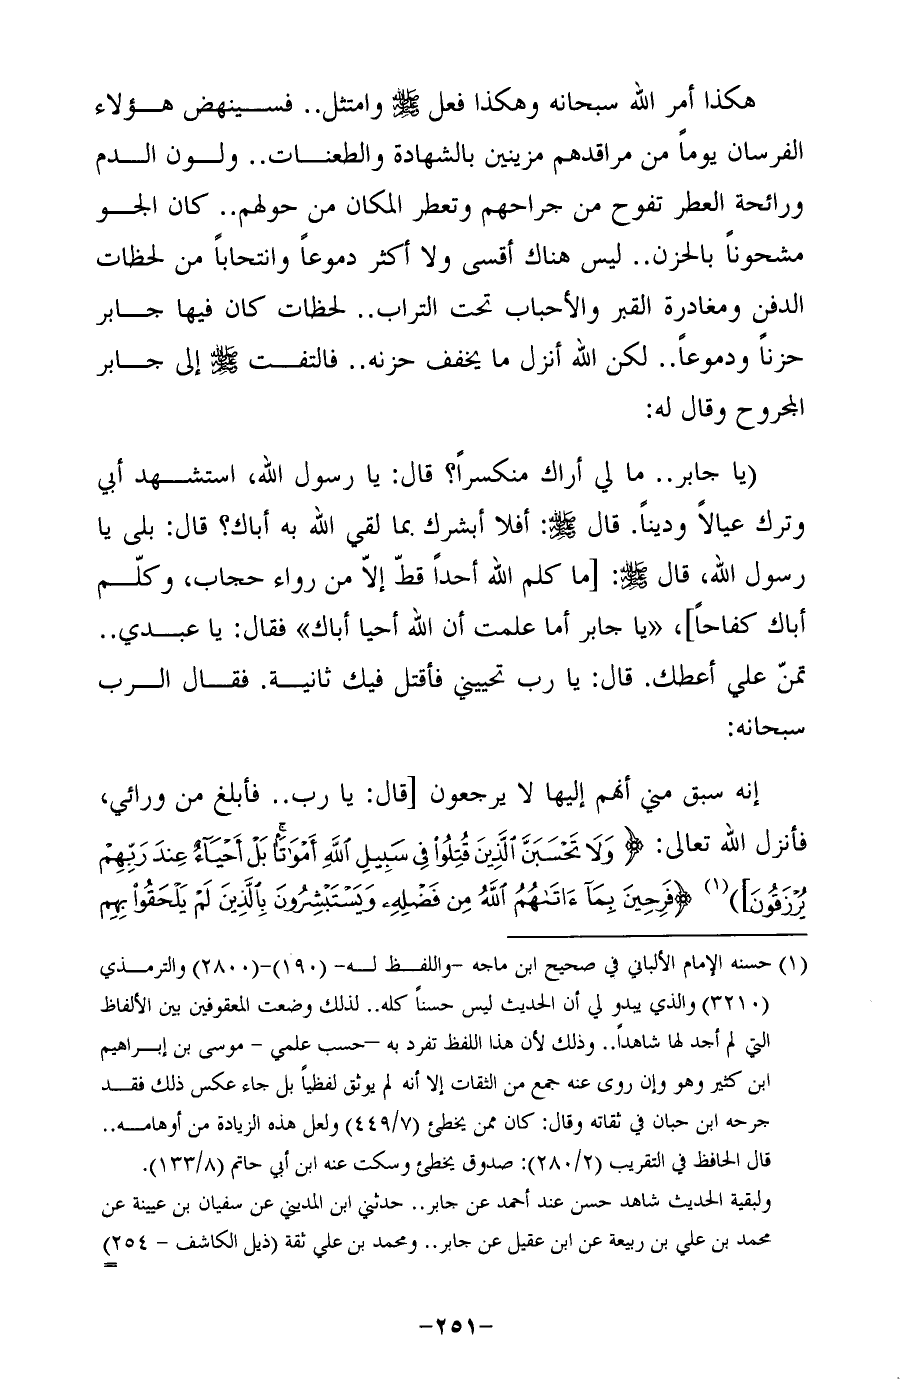 هكذا أمر الله سبحانه وهكذا فعل ﷺ وامتثل.. فسينهض هؤلاء
الفرسان يوماً من مراقدهم مزينين بالشهادة والطعنات.. ولون الدم
ورائحة العطر تفوح من جراحهم وتعطر المكان من حولهم.. كان الجو
مشحوناً بالحزن.. ليس هناك أقسى ولا أكثر دموعاً وانتحاباً من لحظات
الدفن ومغادرة القبر والأحباب تحت التراب.. لحظات كان فيها جابر
حزناً ودموعاً.. لكن الله أنزل ما يخفف حزنه.. فالتفت ﷺ إلى جابر
المجروح وقال له:
(يا جابر.. ما لي أراك منكسراً؟ قال: يا رسول الله، استشهد أبي
وترك عيالاً وديناً. قال ﷺ: أفلا أبشرك بما لقي الله به أباك؟ قال: بلى يا
رسول الله، قال ﷺ: [ما كلم الله أحداً قطّ إلاّ من رواء حجاب، وكلّم
أباك كفاحاً]، «يا جابر أما علمت أن الله أحيا أباك» فقال: يا عبدي..
تمنّ علي أعطك. قال: يا رب تحييني فأقتل فيك ثانية. فقال الرب
سبحانه:
إنه سبق مني أنهم إليها لا يرجعون [قال: يا رب.. فأبلغ من ورائي،
فأنزل الله تعالى: ﴿وَلَا تَحْسَبَنَّ ٱلَّذِينَ قُتِلُواْ فِي سَبِيلِ ٱللَّهِ أَمْوَٰتَۢاۚ بَلْ أَحْيَآءٌ عِندَ رَبِّهِمْ
يُرْزَقُونَ])(١) ﴿فَرِحِينَ بِمَآ ءَاتَىٰهُمُ ٱللَّهُ مِن فَضْلِهِۦ وَيَسْتَبْشِرُونَ بِٱلَّذِينَ لَمْ يَلْحَقُواْ بِهِم
(١) حسنه الإمام الألباني في صحيح ابن ماجه -واللفظ له- (١٩٠)-(٢٨٠٠) والترمذي
(٣٢١٠) والذي يبدو لي أن الحديث ليس حسناً كله.. لذلك وضعت المعقوفين بين الألفاظ
التي لم أجد لها شاهداً.. وذلك لأن هذا اللفظ تفرد به -حسب علمي - موسى بن إبراهيم
ابن كثير وهو وإن روى عنه جمع من الثقات إلا أنه لم يوثق لفظياً بل جاء عكس ذلك فقد
جرحه ابن حبان في ثقاته وقال: كان ممن يخطئ (٤٤٩/٧) ولعل هذه الزيادة من أوهامه..
قال الحافظ في التقريب (٢٨٠/٢): صدوق يخطئ وسكت عنه ابن أبي حاتم (١٣٣/٨).
ولبقية الحديث شاهد حسن عند أحمد عن جابر.. حدثني ابن المديني عن سفيان بن عيينة عن
محمد بن علي بن ربيعة عن ابن عقيل عن جابر.. ومحمد بن علي ثقة (ذيل الكاشف - ٢٥٤)
=
-٢٥١-